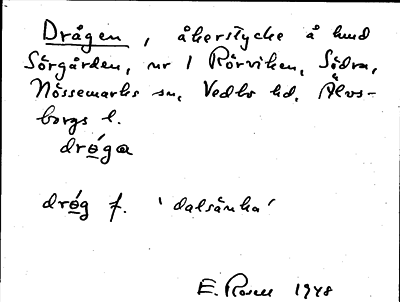 Drågen, åkerstycke å hmd
Sörgården, nr 1 Rörviken, Södra,
Nössemarks sn, Vedbo hd, Älvs-
borgs l.
drǿga
drǿg f. 'dalsänka'
E. Rosell 1948